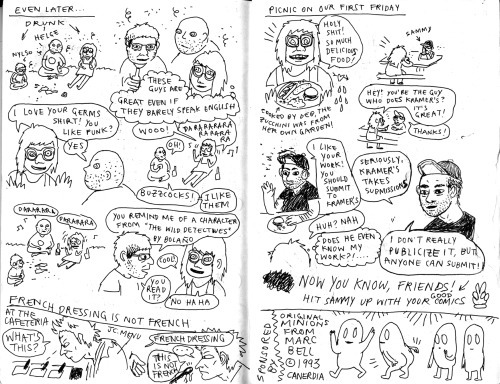 EVEN LATER...
DRUNK
HELGE
NYLSO
THESE
GUYS ARE
GREAT EVEN IF
THEY BARELY SPEAK ENGLISH
I LOVE YOUR GERMS
SHIRT! YOU
LIKE PUNK?
YES
WOOO!
DARARARARA
RARARA
RA
OH!
BUZZCOCKS!
I LIKE
THEM
DARARARA
RARARARA
YOU REMIND ME OF A CHARACTER
FROM "THE WILD DETECTIVES"
BY BOLAÑO
COOL!
YOU
READ
IT?
NO HAHA
FRENCH DRESSING IS NOT FRENCH
AT THE
CAFETERIA
WHAT'S
THIS?
JC.MENU
FRENCH DRESSING
THIS
IS NOT
FRENCH
PICNIC ON OUR FIRST FRIDAY
HOLY
SHIT!
SO MUCH
DELICIOUS
FOOD!
SAMMY
COOKED BY
THE
ZUCCHINI WAS FROM
HER OWN GARDEN!
HEY! YOU'RE THE GUY
WHO DOES KRAMER'S?
IT'S
GREAT!
THANKS!
I LIKE
YOUR
WORK!
YOU
SHOULD
SUBMIT
TO
KRAMER'S
SERIOUSLY,
KRAMER'S
TAKES
SUBMISSIONS
HUH? NAH
DOES HE EVEN
KNOW MY
WORK?!
I DON'T REALLY
PUBLICIZE IT, BUT
ANYONE CAN SUBMIT!
NOW YOU KNOW, FRIENDS!
HIT SAMMY UP WITH YOUR GOOD COMICS
SPONSORED
BY
ORIGINAL
MINIONS
FROM
MARC
BELL
© 1993
CANERDIA